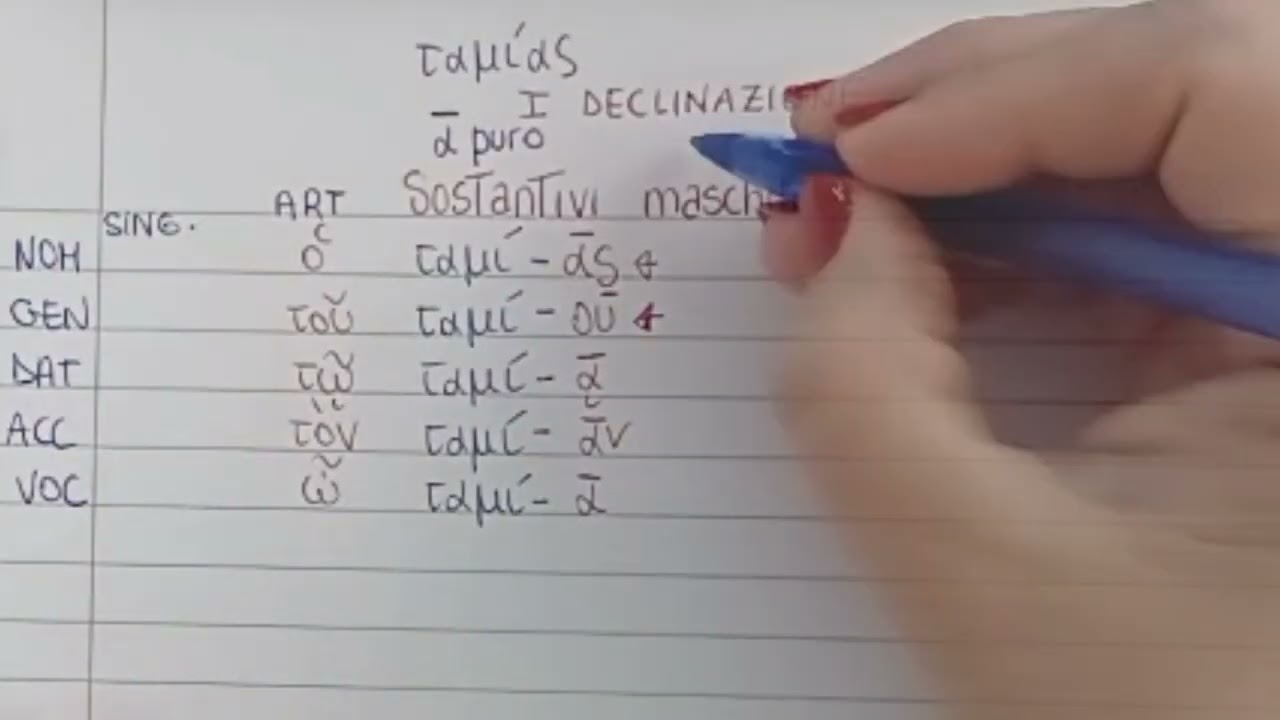 ταμίας
I DECLINAZI
ᾱ puro
SING. ART Sostantivi masch
NOM ὁ ταμί-ᾱς
GEN τοῦ ταμί-οῡ
DAT τῷ ταμί-ᾱͅ
ACC τὸν ταμί-ᾱν
VOC ὦ ταμί-ᾱ